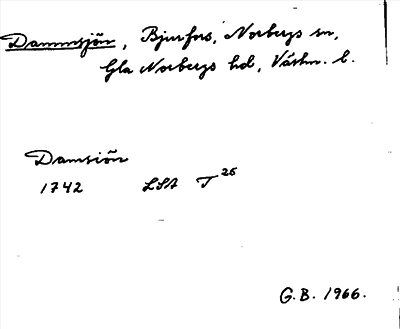 Dammsjön, Bjurfors, Norbergs sn,
Gla Norbergs hd, Västm. l.
Damsiön
1742 LSA T 26
G.B. 1966.